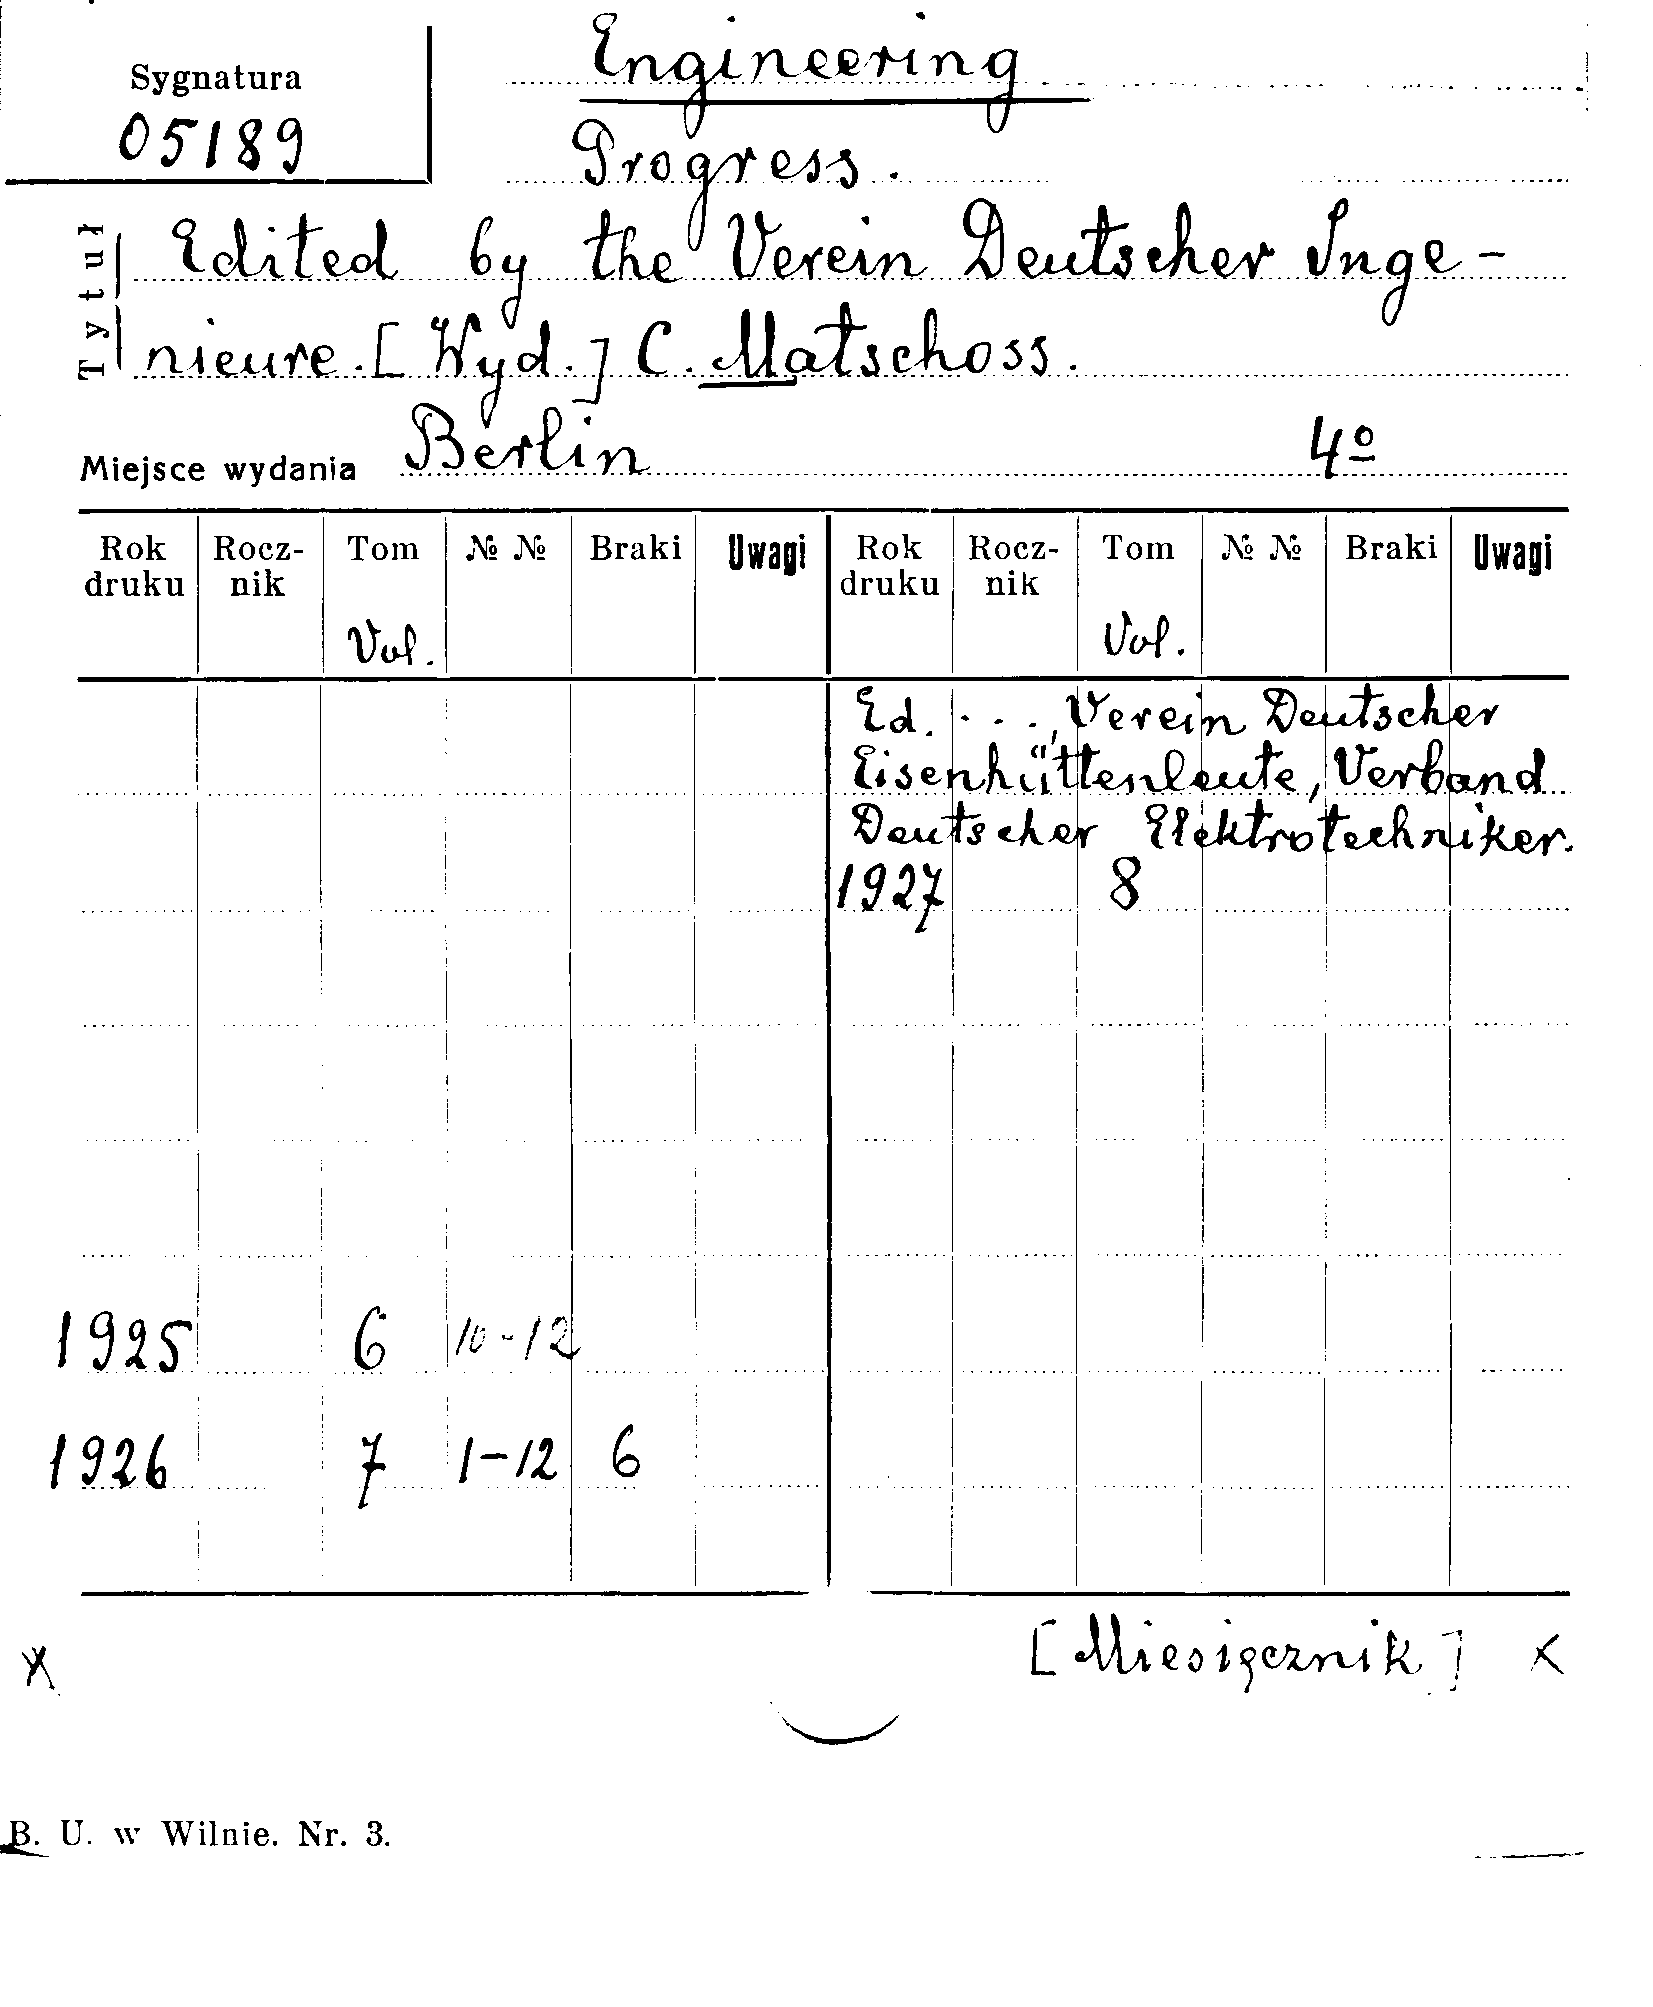 Sygnatura
05189
Engineering
Progress.
Tytuł
Edited by the Verein Deutscher Inge-
nieure. [Wyd.] C. Matschoss.
Miejsce wydania Berlin 4º
Rok druku Rocz-nik Tom № № Braki Uwagi Rok druku Rocz-nik Tom № № Braki Uwagi
Vol. Vol.
Ed. . . ., Verein Deutscher
Eisenhüttenleute, Verband
Deutscher Elektrotechniker.
1927 8
1925 6 10-12
1926 7 1-12 6
[Miesięcznik]
B. U. w Wilnie. Nr. 3.